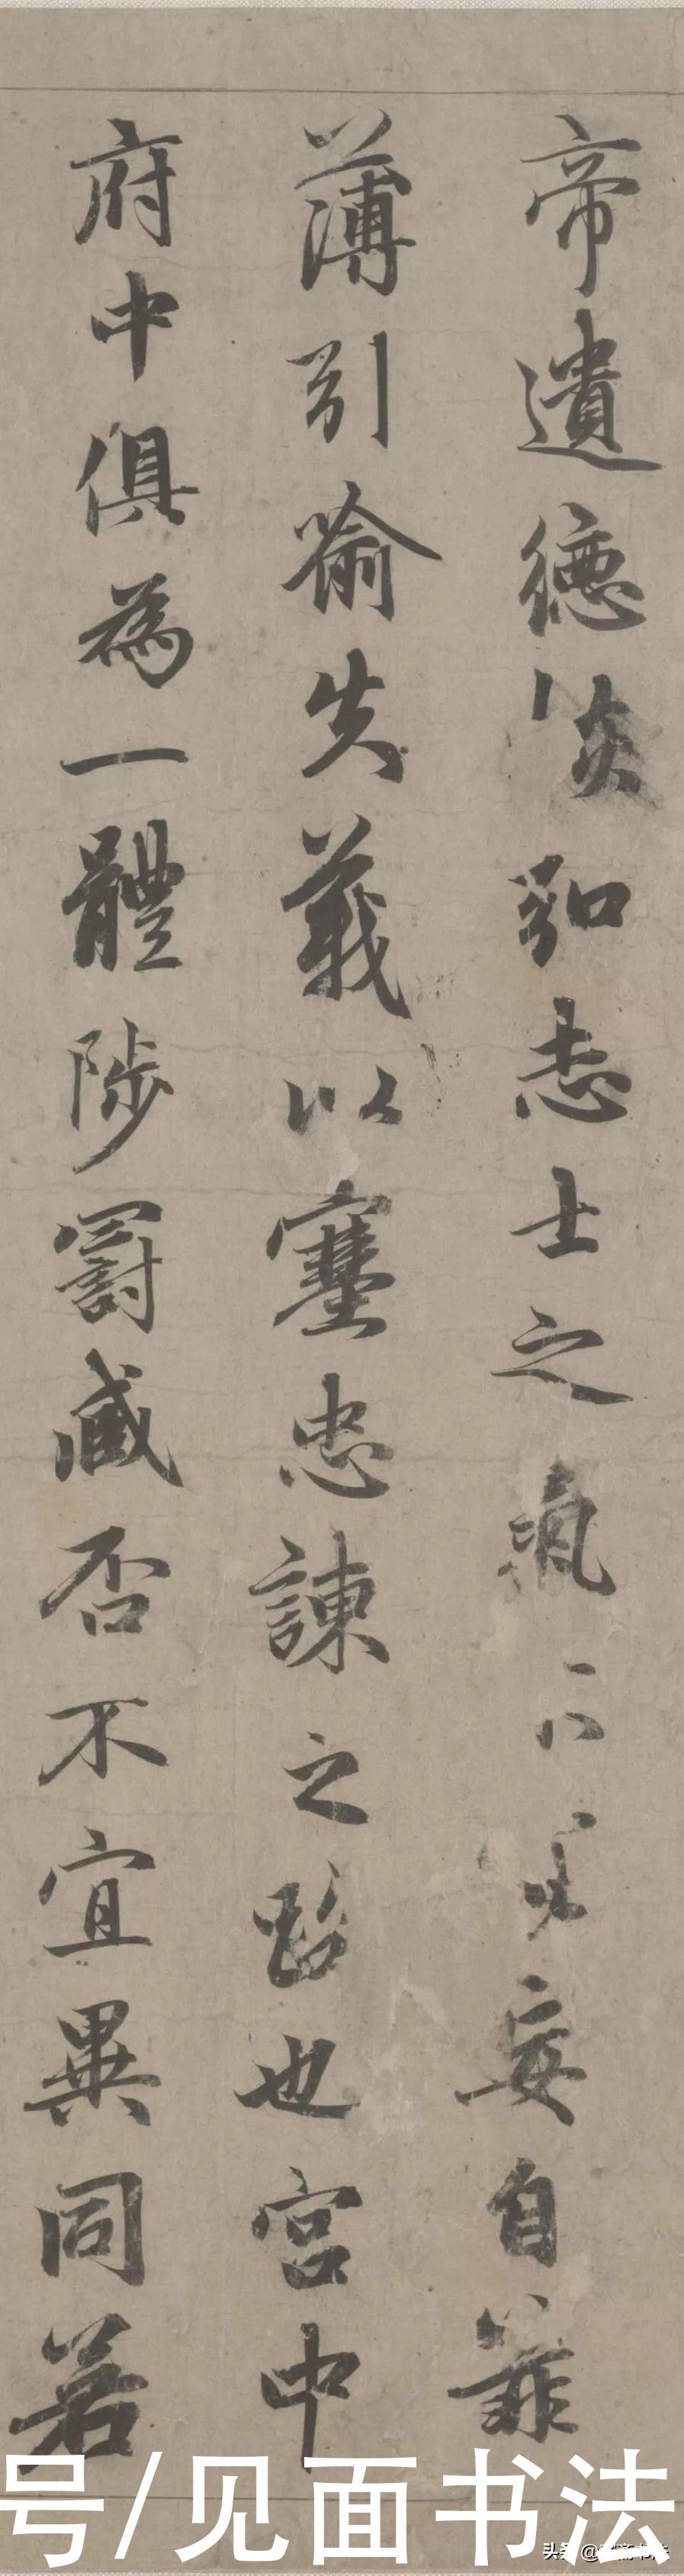 帝遺德恢弘志士之氣不宜妄自菲
薄引喻失義以塞忠諫之路也宮中
府中俱為一體陟罰臧否不宜異同若
号/见面书法
头条@